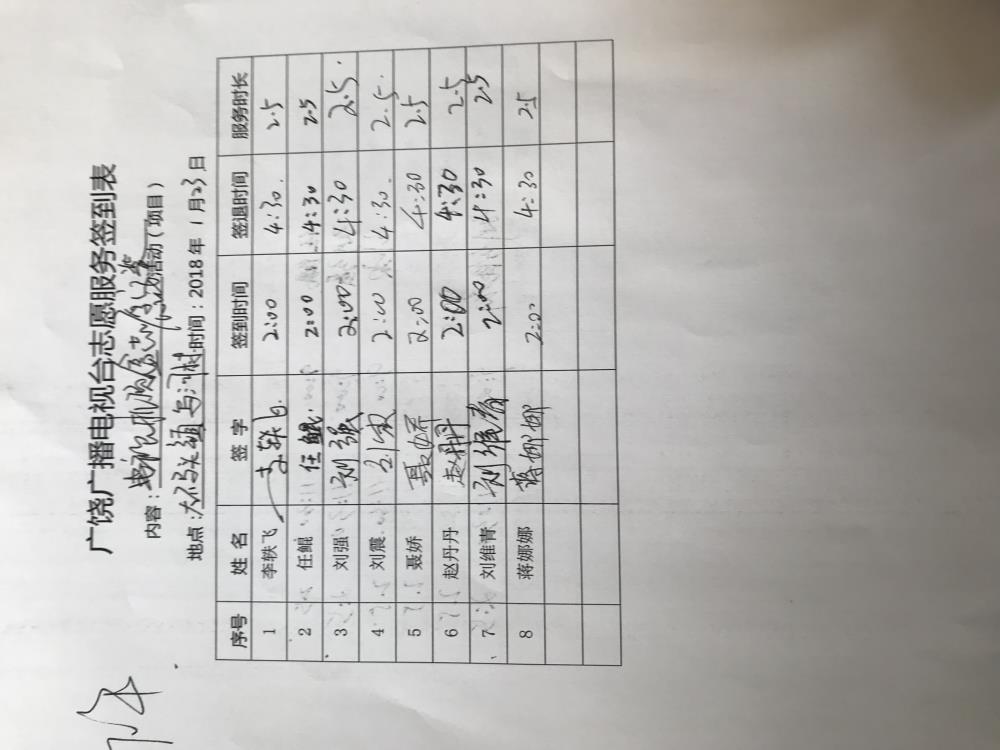 广饶广播电视台志愿服务签到表
内容： 活动（项目）
地点：大码头镇 时间：2018年 1月23日
序号 姓名 签字 签到时间 签退时间 服务时长
1 李轶飞 李轶飞 2:00 4:30. 2.5
2 任鲲 任鲲. 2:00 4:30 2.5
3 刘强 刘强 2:00 4:30 2.5.
4 刘震 刘震 2:00 4:30. 2.5.
5 聂娇 聂娇 2:00 4:30 2.5
6 赵丹丹 赵丹丹 2:00 4:30 2.5
7 刘维青 刘维青 2:00 4:30 2.5
8 蒋娜娜 蒋娜娜 2:00 4:30 2.5